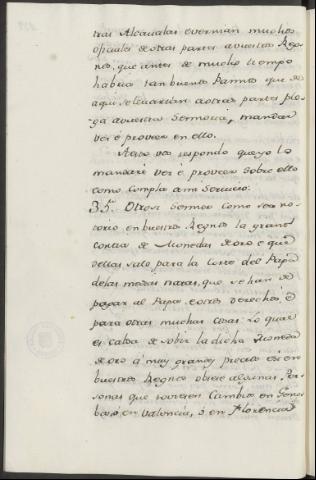 tras Alcavalas e vernian muchos
oficiales de otras partes a vuestros Reg-
nos, que antes de mucho tiempo
habria tan buenos Pannos que de
aqui se levarian a otras partes ple-
ga a vuestra Sennoria, mandar
ver è proveer en ello.
A esto vos respondo que yo lo
mandarè ver è proveer sobre ello
como cumpla a mi Servicio.
35. Otrosi Sennor como sea no-
torio en buestros Regnos la grand
de Monedas de oro e que
dellas sale para la Corte del Papa
de las medias natas, que se han de
pagar al Papa e otros derechos, è
para otras muchas cosas: lo qual
es cabsa de sobir la dicha Moneda
de oro à muy grandes precios è si en
buestros Regnos obiese algunas Per-
sonas que toviesen Cambio en Geno-
ba, ò en Valencia, ò en Florencia